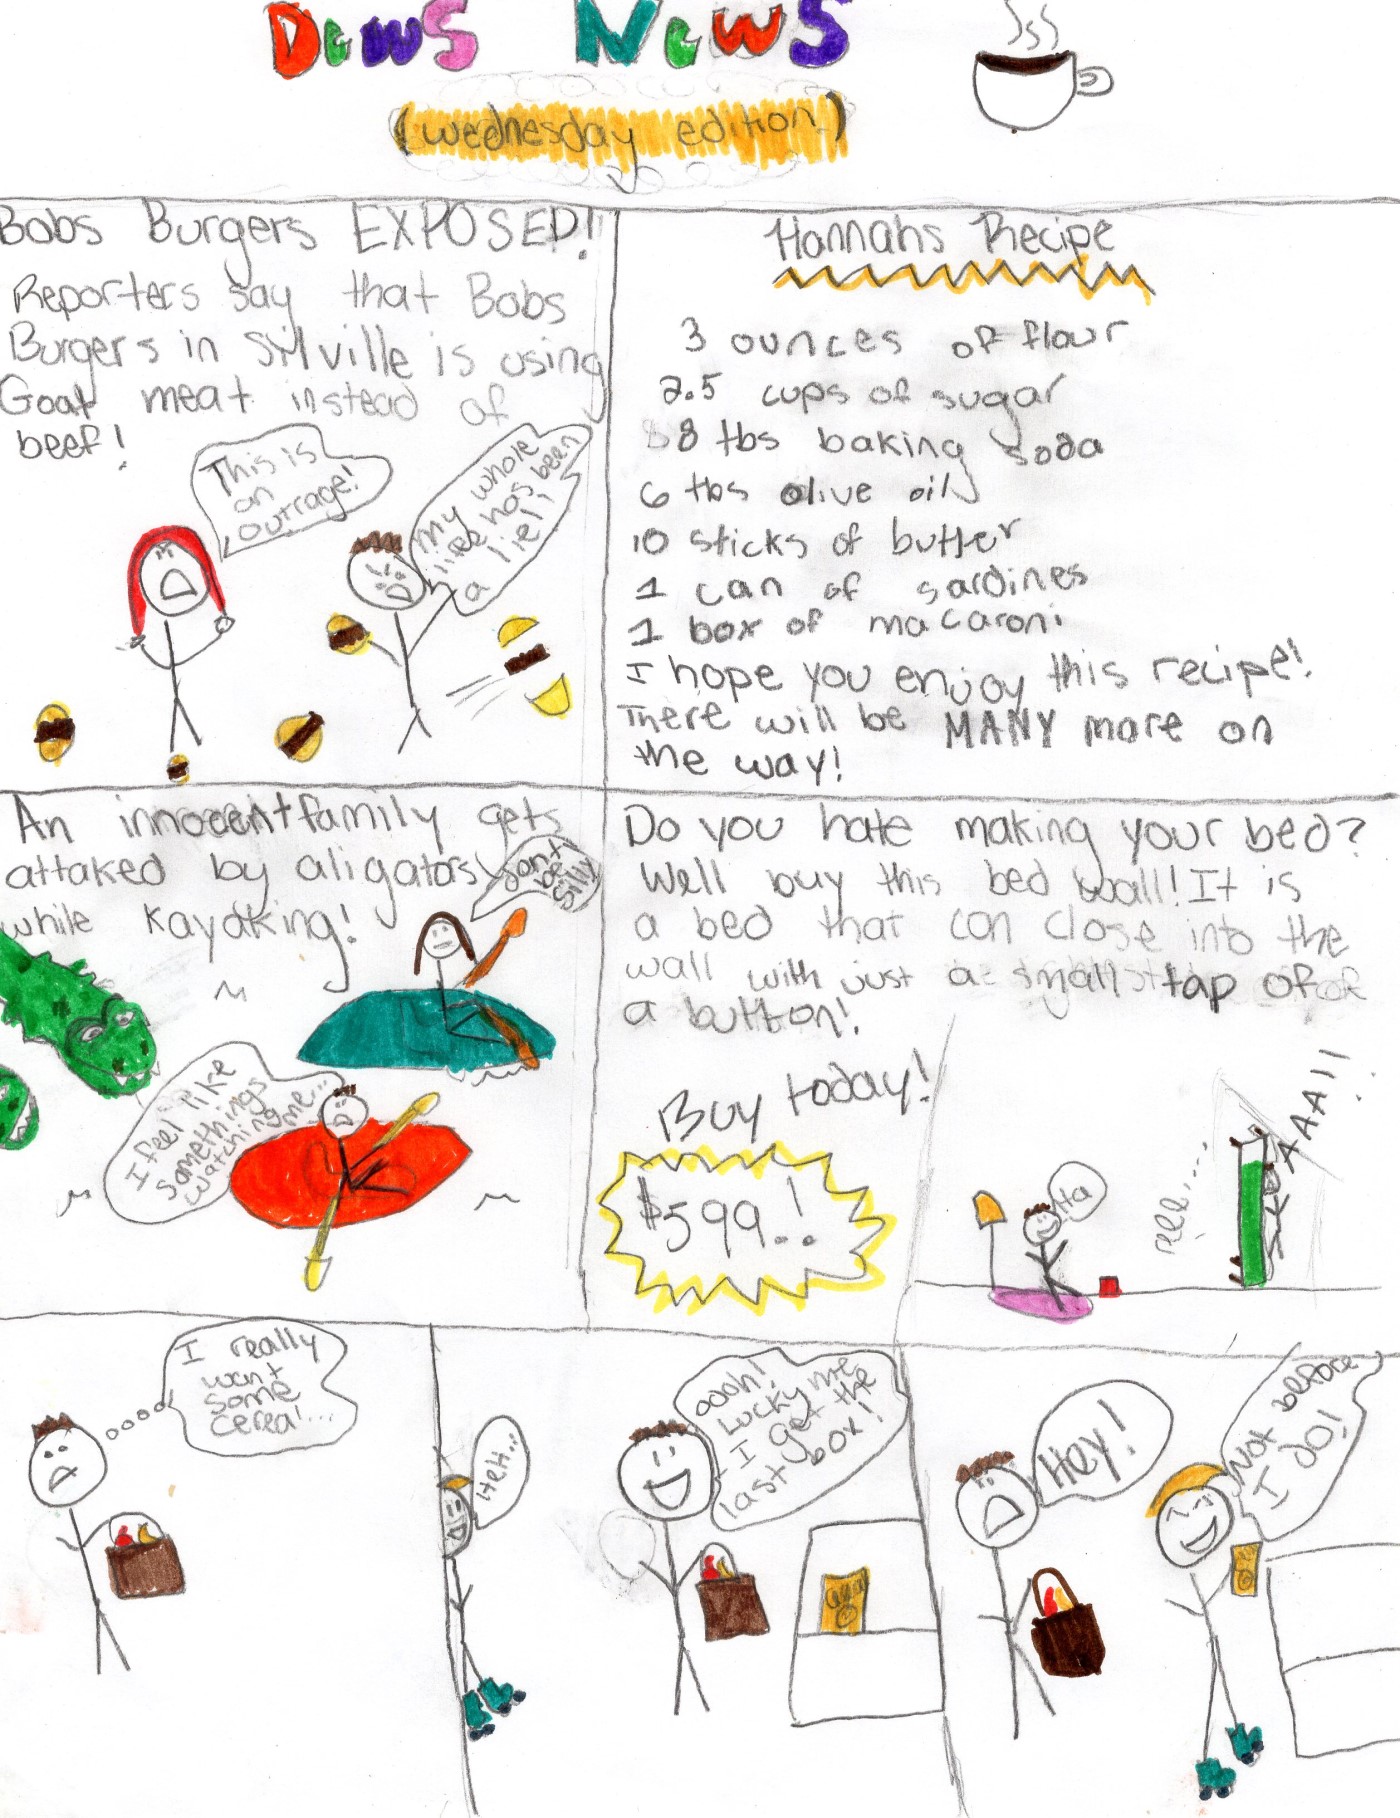 Dews News
(wednesday edition)
Bobs Burgers EXPOSED!
Reporters say that Bobs
Burgers in Sylville is using
Goat meat instead of
beef!
This is
an
outrage!
My whole
life has been
a lie!
Hannahs Recipe
3 ounces of flour
2.5 cups of sugar
8 tbs baking soda
6 tbs olive oil
10 sticks of butter
1 can of sardines
1 box of macaroni
I hope you enjoy this recipe!
There will be MANY more on
the way!
An innocent family gets
attaked by aligators
while kayaking!
Dont
be
silly
I feel like
somethings
watching me...
Do you hate making your bed?
Well buy this bed wall! It is
a bed that can close into the
wall with just a small tap of
a button!
Buy today!
$599..!
Ha
AAAA!!
I really
want
some
cereal...
Heh...
oooh!
Lucky me
I get the
last box!
Hey!
Not before
I DO!